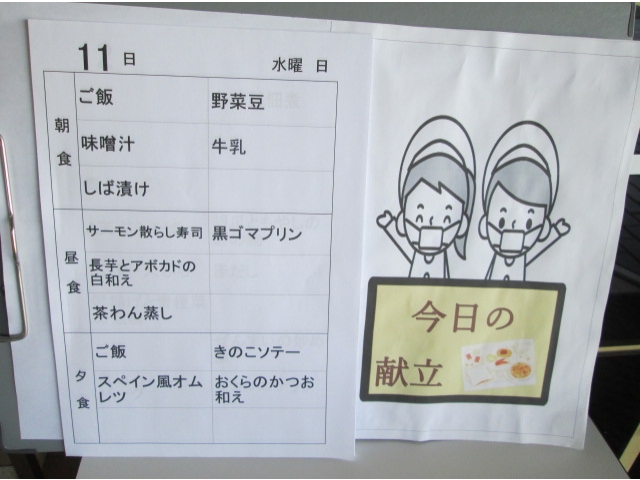 11日 水曜 日
朝食
ご飯 野菜豆
味噌汁 牛乳
しば漬け
昼食
サーモン散らし寿司 黒ゴマプリン
長芋とアボカドの
白和え
茶わん蒸し
夕食
ご飯 きのこソテー
スペイン風オム
レツ
おくらのかつお
和え
今日の
献立